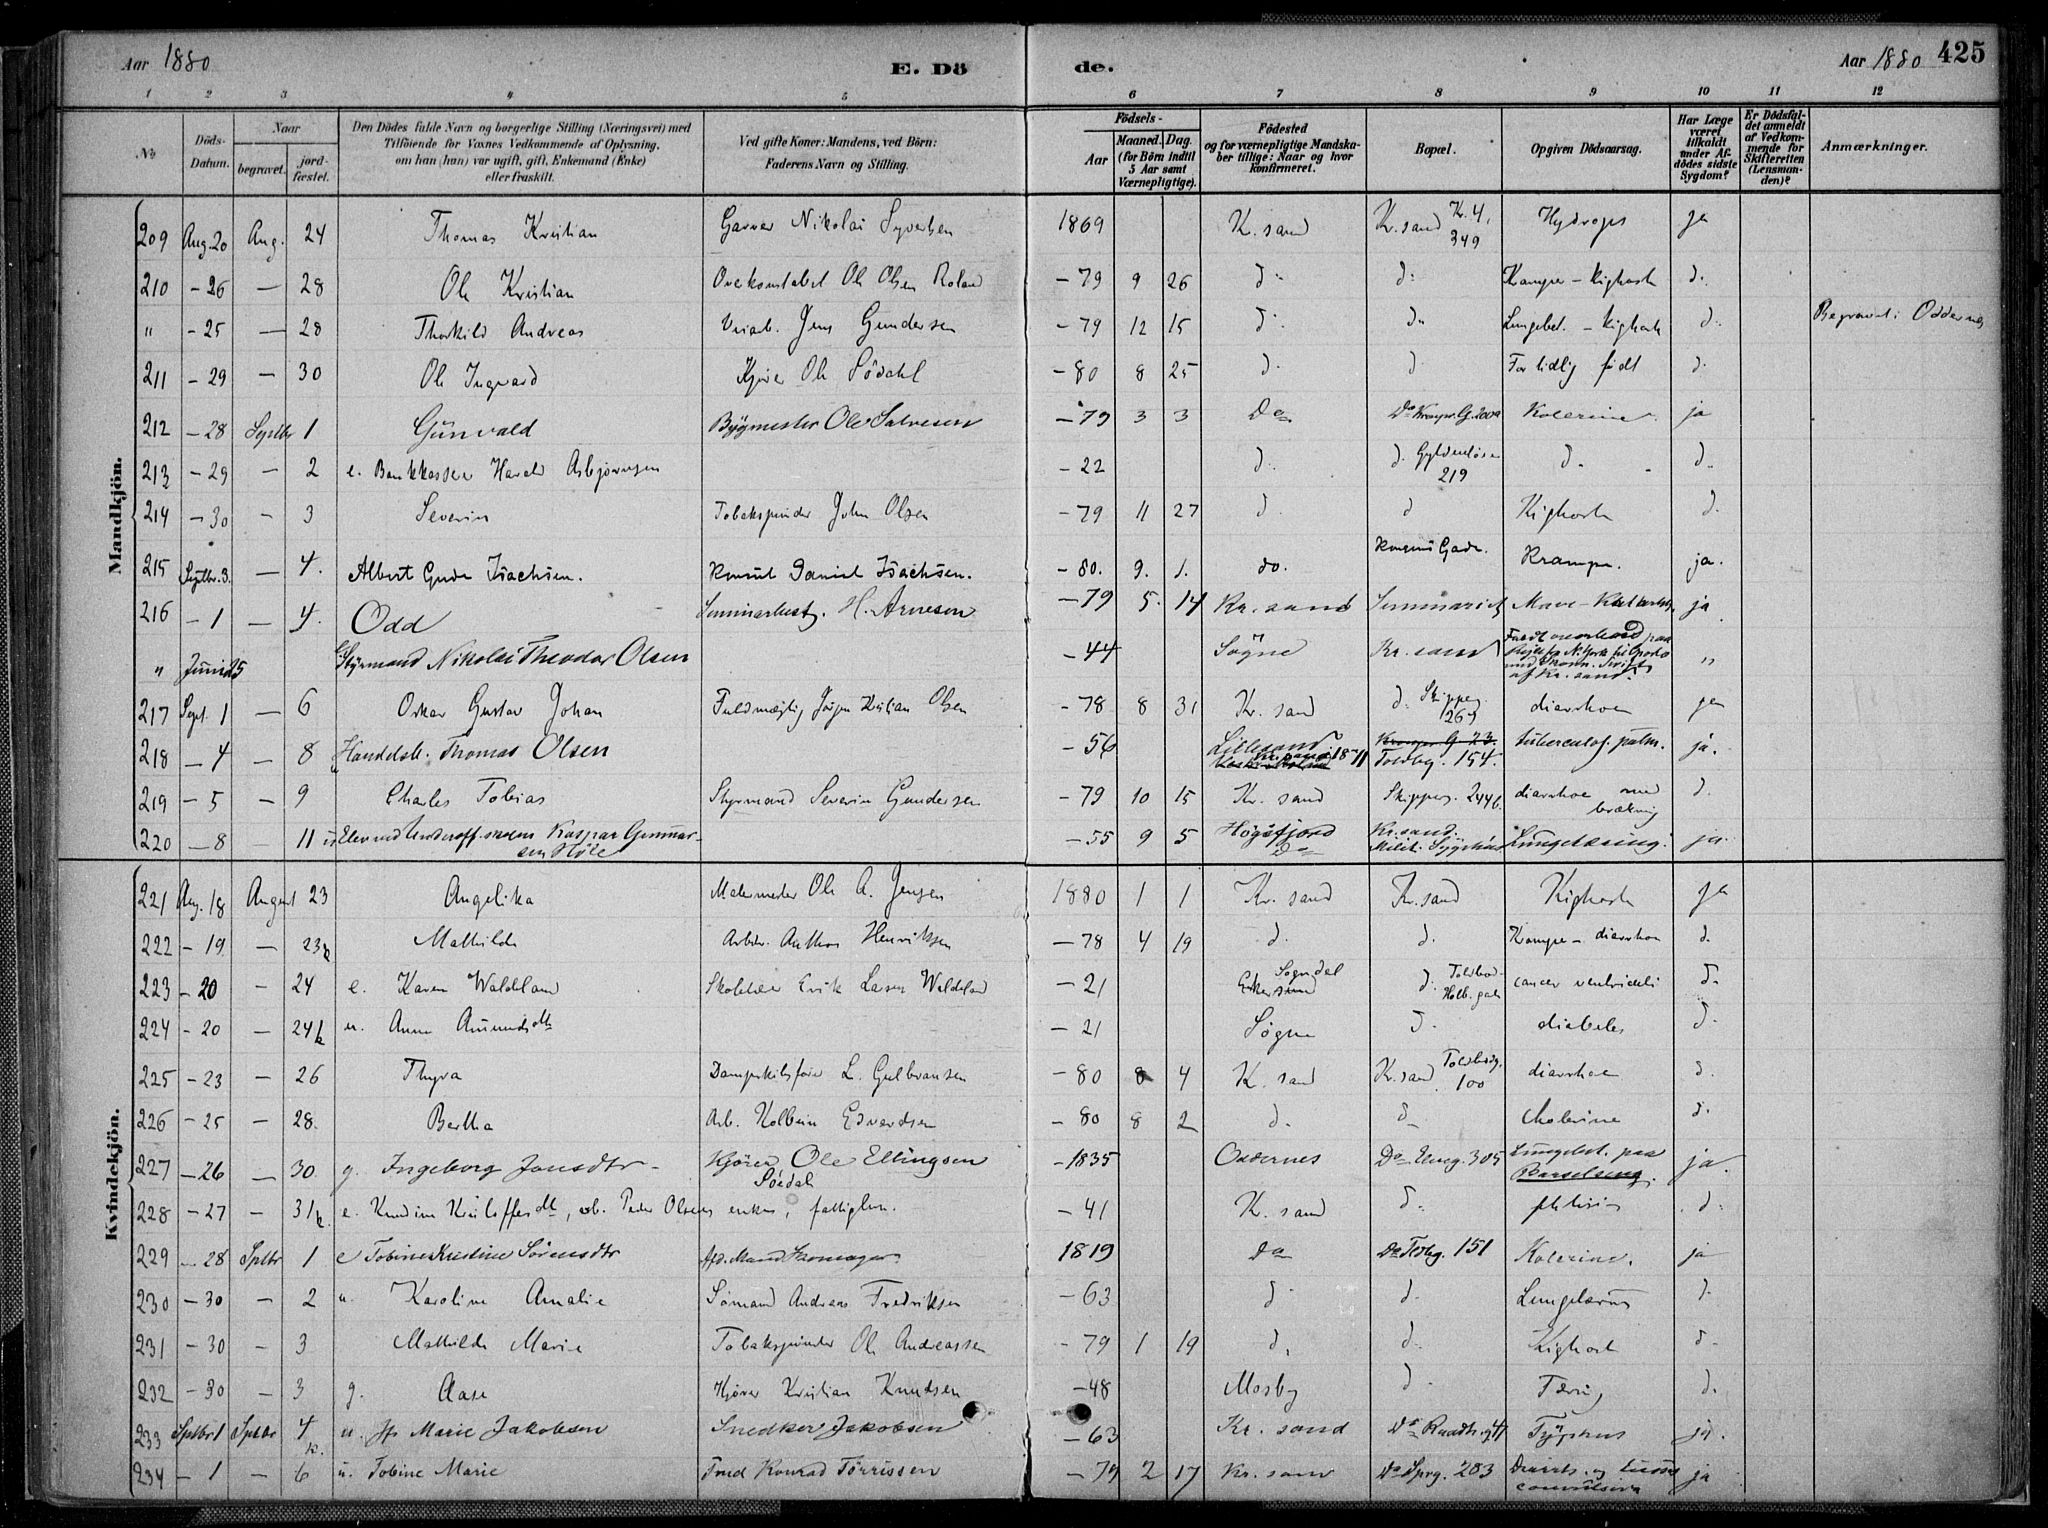 Aar 1880 E. Dö de. Aar 1880 425
1 2 3 4 5 6 7 8 9 10 11 12
No Döds-Datum. Naar begravet. jordfæstet. Den Dödes fulde Navn og borgerlige Stilling (Næringsvei) med Tilföiende for Voxnes Vedkommende af Oplysning, om han (hun) var ugift, gift, Enkemand (Enke) eller fraskilt. Ved gifte Koner: Mandens, ved Börn: Faderens Navn og Stilling. Födsels- Aar Maaned. Dag. (for Börn indtil 5 Aar samt Værnepligtige). Födested og for værnepligtige Mandskaber tillige: Naar og hvor konfirmeret. Bopæl. Opgiven Dödsaarsag. Har Læge været tilkaldt under Afdödes sidste Sygdom? Er Dödsfaldet anmeldt af Vedkommende for Skifteretten (Lensmanden)? Anmærkninger.
Mandkjön.
209 Aug. 20 Aug. 24 Thomas Kristian Garver Nikolai Syvertsen 1869 K. sand Kr. sand Kr. 4, 349 Hydrops ja
210 - 26 - 28 Ole Kristian Overkonstabel Ole Olsen Roland - 79 9 26 d: d: Krampe - Kighoste d:
" - 25 - 28 Thorkild Andreas Jens Gundersen - 79 12 15 d: d: Lungebet. - Kighoste d: Begravet i Oddernes
211 - 29 - 30 Ole Ingvard Kjører Ole Södahl - 80 8 25 d. d. For tidlig født d.
212 - 28 Septbr 1 Günvald Bygmester Ole Salvesen - 79 3 3 Do Do Krospr. G. 200a Kolerine ja
213 - 29 - 2 e. Bankkasser Harald Asbjørnsen - 22 d. d. Gyldenløse 219 d. d.
214 - 30 - 3 Severin Tobakspinder John Olsen - 79 11 27 d. d Kighoste d.
215 Septbr. 3. - 4. Albert Gude Isachsen. Konsul Daniel Isachsen. - 80. 9. 1. do. Kongens Gade. Krampe. ja.
216 - 1 - 4. Odd H. Arnesen - 79 5. 14 Kr. sand Seminariet Mave - ja
" Juni 25 Styrmand Nikolai Theodor Olsen - 44 Søgne Kr. sand Faldt overbord paa Reise fra N. York til af Kr. sand. "
217 Sept. 1 - 6 Oskar Gustav Johan Fuldmægtig Jørgen Kristian Olsen - 78 8 31 Kr. sand d. Skipperg. 269 diarrhoe ja
218 - 4 - 8 Handelsb. Thomas Olsen - 56 Lillesand Kr. sand 18 - 11 Kronpr. G 23. Toldbg. 154. tuberculos. pulm. ja.
219 - 5 - 9 Charles Tobias Styrmand Severin Gundersen - 79 10 15 Kr. sand Skipperg. 244b. diarrhoe med brækning d.
220 - 8 - 11 u. Elev ved Underoff. skolen Kaspar Gunnarsen Høle - 55 9 5 Høgsfjord Do Kr. sand. Milit. Sygehus Lungetæring. ja.
Kvindekjön.
221 Aug. 18 August 23 Angelika Malermester Ole A. Jensen 1880 1 1 Kr. sand Kr. sand Kighoste ja
222 - 19 - 23 k Mathilde Arbdr. Anthon Henriksen - 78 4 19 d. d. Krampe - diarrhoe d.
223 - 20 - 24 e. Karen Waldeland Skolelær Erik Larsen Waldeland - 21 Sogndal Ekersund d. Toldbod- Holb. gade cancer ventriculi d.
224 - 20 - 24 k u. Anne Amundsdtr - 21 Søgne d. diabetes d.
225 - 23 - 26 Thyra Dampskibsfører L. Gulbransen - 80 8 4 K. sand K. sand Toldbodg. 100 diarrhoe d.
226 - 25 - 28. Bertha Arb. Kolbein Edvardsen - 80 8 2 d. d. Cholerine d.
227 - 26 - 30. g. Ingeborg Jonsdtr - Kjører Ole Ellingsen Södal - 1835 Oddernes Do Elveg. 305 Lungebet. paa Barselseng. ja.
228 - 27 - 31 k. e. Kristoffersdtr, arb. Peder Olsens enke, fattiglem. - 41 K. sand d. phthisis d.
229 - 28 Septbr 1 e Tobine Kristine Sørensdtr Afd. Mand Skomager 1819 Do Do Toldbg. 151 Kolerine. ja
230 - 30 - 2 u. Karoline Amalie Sømand Andreas Fredriksen - 63 d d. Lungetæring d.
231 - 30 - 3 Mathilde Marie Tobakspinder Ole Andreassen - 79 1 19 d. d. Kighoste d.
232 - 30 - 3 g. Aase Kjører Kristian Knudsen - 48 Mosby d. Tæring d.
233 Septbr 1 Septbr 4 k. u. Marie Jakobsen Snedker Jakobsen - 63 Kr. sand Do Raadhusg. 4 Typhus ja.
234 - 1 - 6 u. Tobine Marie Fred Konrad Tørrissen - 79 2 17 Kr. sand Do 283 Diarrh. og convulsiva ja